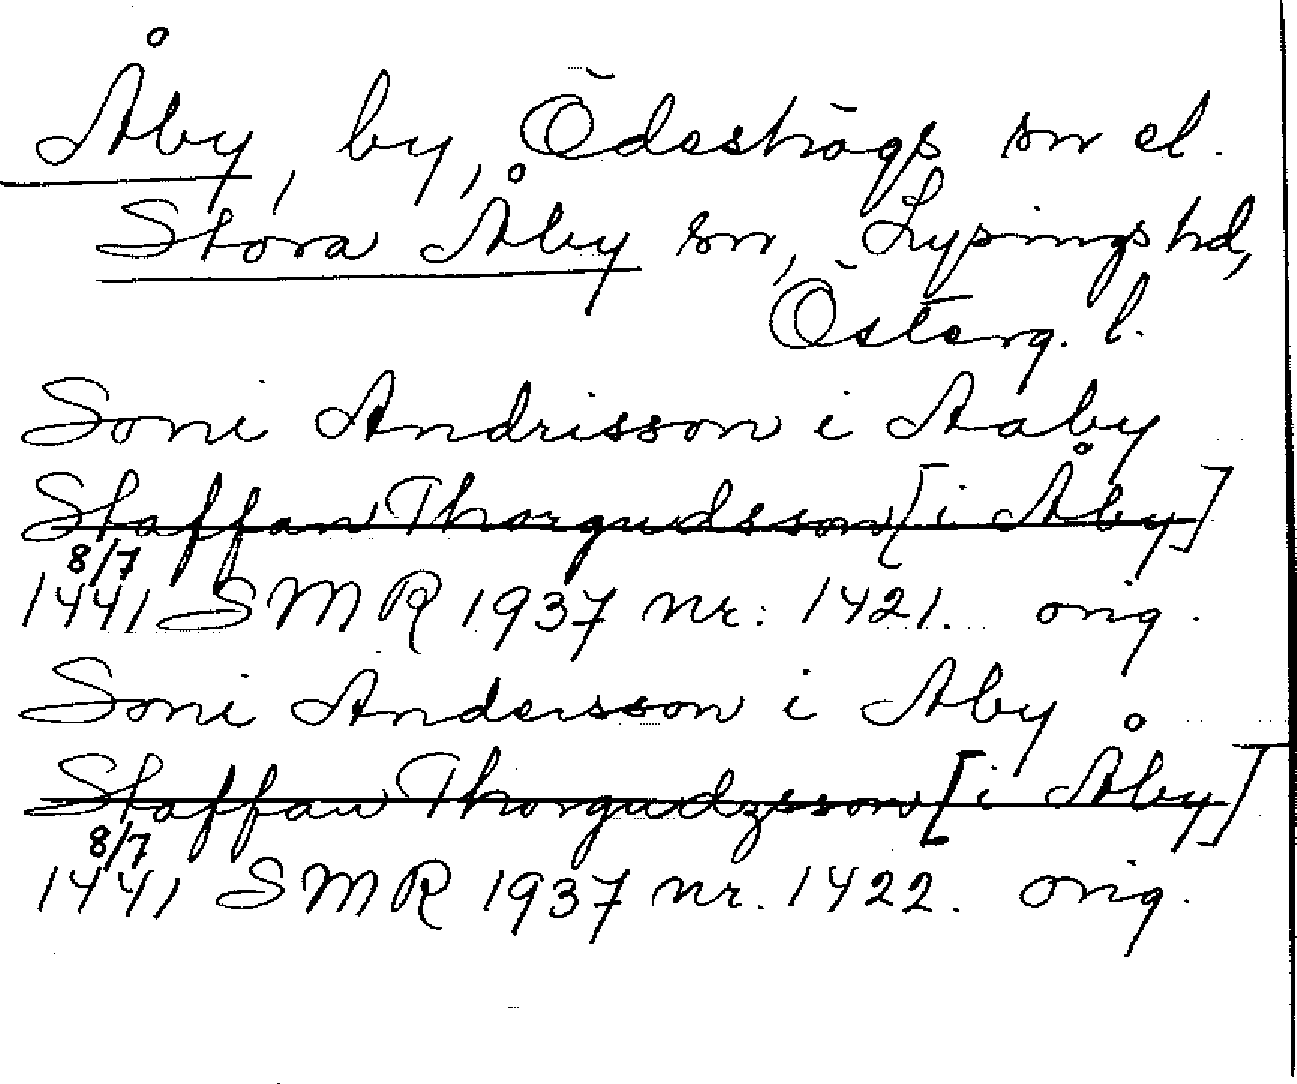 Åby, by, Ödeshögs sn el.
Stora Åby sn, Lysings hd,
Österg. l.
Soni Andrisson i Aaby
Staffan Thorgudsson [i Åby]
8/7
1441 SMR 1937 nr: 1421. orig.
Soni Andersson i Aby
Staffan Thorgudzsson [i Åby]
8/7
1441 SMR 1937 nr. 1422. orig.